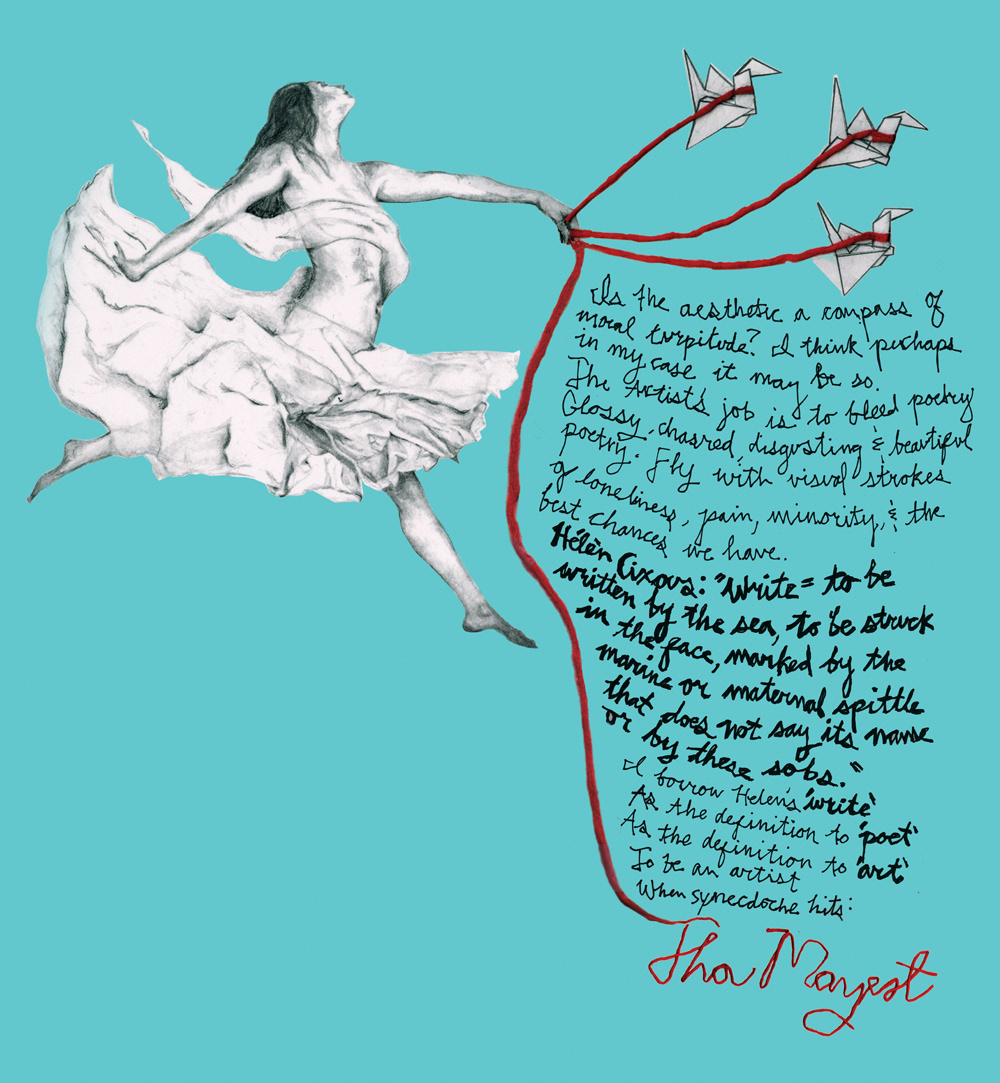 Is the aesthetic a compass of
moral turpitude? I think perhaps
in my case it may be so.
The Artist's job is to bleed poetry
Glossy, charred, disgusting & beautiful
poetry. Fly with visual strokes
of loneliness, pain, minority, & the
best chances we have.
Hélèn Cixous: "Write = to be
written by the sea, to be struck
in the face, marked by the
marine or maternal spittle
that does not say its name
or by these sobs."
I borrow Helen's 'write'
As the definition to 'poet'
As the definition to 'art'
To be an artist
When synecdoche hits:
Thou Mayest